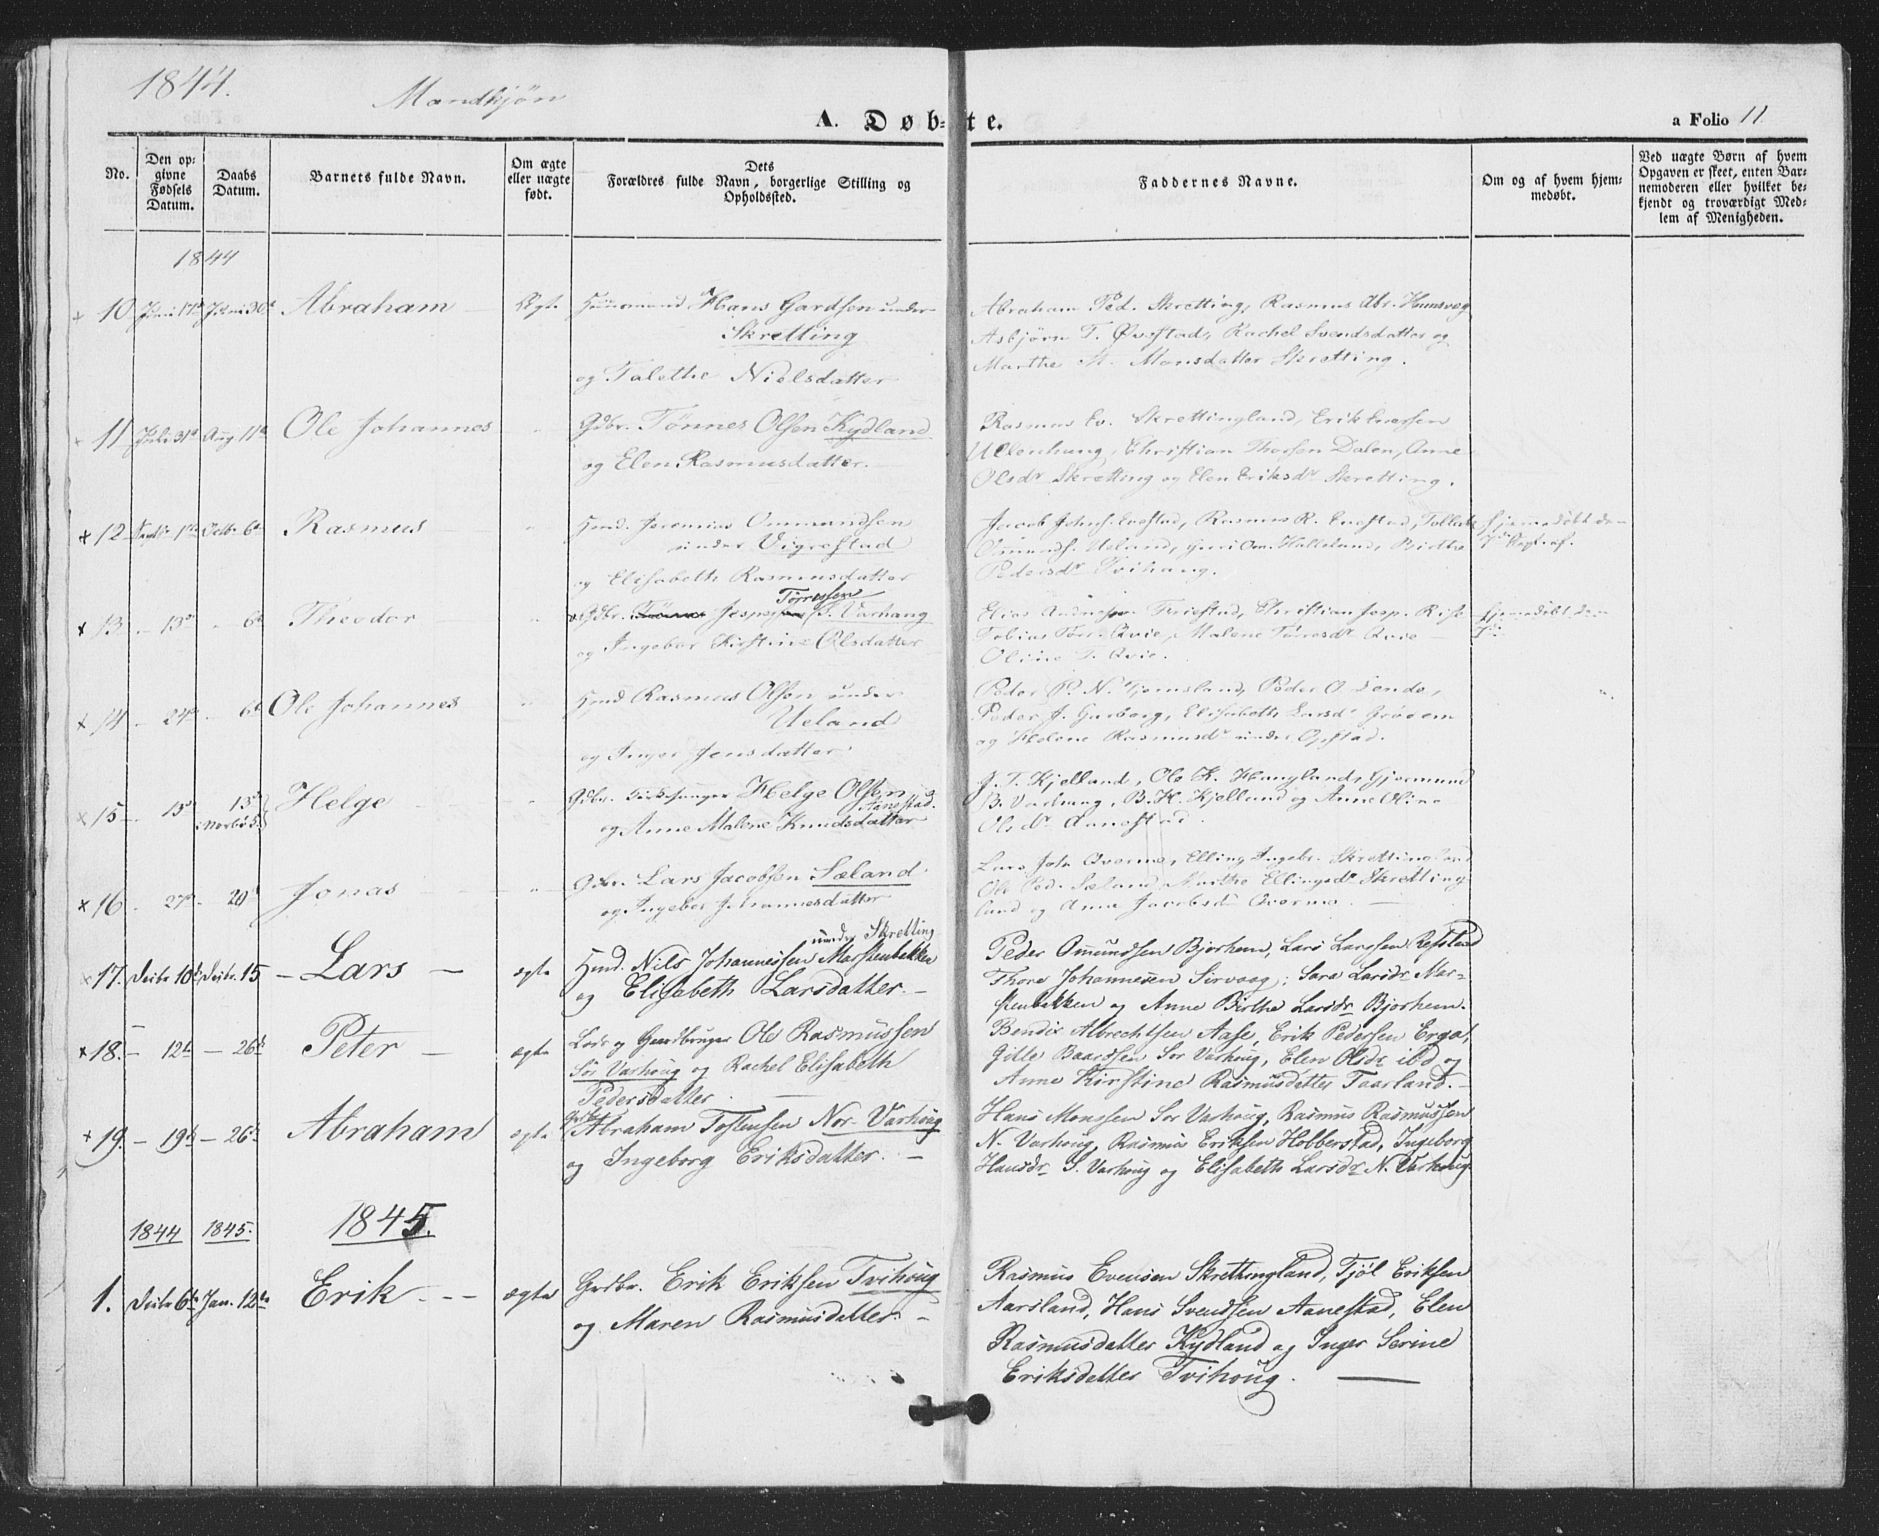 1844.
Mandkjøn
A. Døbte.
a Folio 11
No.
Den opgivne Fødsels Datum.
Daabs Datum.
Barnets fulde Navn.
Om ægte eller uægte født.
Dets Forældres fulde Navn, borgerlige Stilling og Opholdssted.
Faddernes Navne.
Om og af hvem hjemmedøbt.
Ved uægte Børn af hvem Opgaven er skeet, enten Barnemoderen eller hvilket bekjendt og troværdigt Medlem af Menigheden.
1844
10 Juni 17de Juni 30te Abraham Ægte Huusmand Hans Gardsen under
Skretting
og Talethe Nielsdatter
Abraham Ped. Skretting, Rasmus Abr. Homsveg
Asbjørn T. Øvestad, Rachel Svendsdatter og
Marthe M. Monsdatter Skretting.
11 Juli 31te Aug. 11te Ole Johannes " Gdbr. Tønnes Olsen Kydland
og Elen Rasmusdatter.
Rasmus Ev. Skrettingland, Erik Evensen
Ullenhaug, Christian Thorsen Dalen, Anne
Olsdr Skretting og Elen Eriksdr Skretting.
12 Septbr 1ste Octb. 6te Rasmus " Hmd. Jeremias Ommundsen
under Vigrestad
og Elisabeth Rasmusdatter
Jacob Johns. Evestad, Rasmus R. Evestad, Tollak
Omunds. Ueland, Guri Om. Halleland, Birthe
Pedersdr Tvihaug.
hjemmedøbt den
13 - 13de - 6te Theodor " Gdbr. Jesper Tørresen S. Varhaug
og Ingebor Kirstine Olsdatter
Elias Andresen Friestad, Christian Jesp. Risø
Tobias Tørr. Qvie, Malene Tørresdr Qvie
Oline T. Qvie.
hjemmedøbt den
14 - 24de - 6te Ole Johannes " Hmd Rasmus Olsen under
Ueland
og Inger Jensdatter
Peder P. N. Tjemsland, Peder O. Lende,
Peder J. Garborg, Elisabeth Larsdr Grødem
og Helene Rasmusdr under Opstad.
15 - 15de 13de Helge " Gdbr. Kirkesanger Helge Olsen
Aanestad.
og Anne Malene Knudsdatter
G. T. Kjelland, Ole K. Haugland, Gjermund
B. Varhaug, B. H. Kjelland og Anne Oline
Olsdr Aanestad.
16 - 27de - 20de Jonas " Gdbr. Lars Jacobsen Sæland
og Ingebor Johannesdatter
Lars Joh. Qverme, Elling Ingebr. Skrettingland
Ole Ped. Sæland, Marthe Ellingsdr Skretting
land og Anne Jacobsdr Qverme.
under Skretting
17. Decbr 10de Decbr. 15 - Lars - ægte Hmd. Nils Johannessen Marstenbakken
og Elisabeth Larsdatter. -
Peder Omundsen Bjorhem, Lars Larssen Refsland
Thore Johannesen Sirvaag; Sara Larsdr Mar-
stenbakken og Anne Birthe Larsdr Bjorhem.
18. - 12te - 26de Peter - ægte Lods og Gaardbruger Ole Rasmussen
Sör Varhoug og Rachel Elisabeth
Pedersdatter. -
Bendix Albrechtsen Aase, Erik Pedersen Erga,
Gitle Baardsen Sör Varhoug, Elen Olsdr ibd og
Anne Kirstine Rasmusdatter Taarland. -
19. - 19de - 26de Abraham ægte Gdbr. Abraham Tostensen Nor-Varhoug
og Ingeborg Eriksdatter. -
Hans Monssen Sör Varhoug, Rasmus Rasmussen
N. Varhoug, Rasmus Eriksen Hobberstad, Ingeborg
Hansdr S. Varhoug og Elisabeth Larsdr N. Varhoug
1844 1845. 1845.
1. Decbr 6te Jan. 12te Erik. - - ægte Grdbr. Erik Eriksen Tvihoug
og Maren Rasmusdatter. -
Rasmus Evensen Skrettingland, Tjöl Eriksen
Aarsland, Hans Svendsen Aanestad, Elen
Rasmusdatter Kydland og Inger Serine
Eriksdatter Tvihoug.